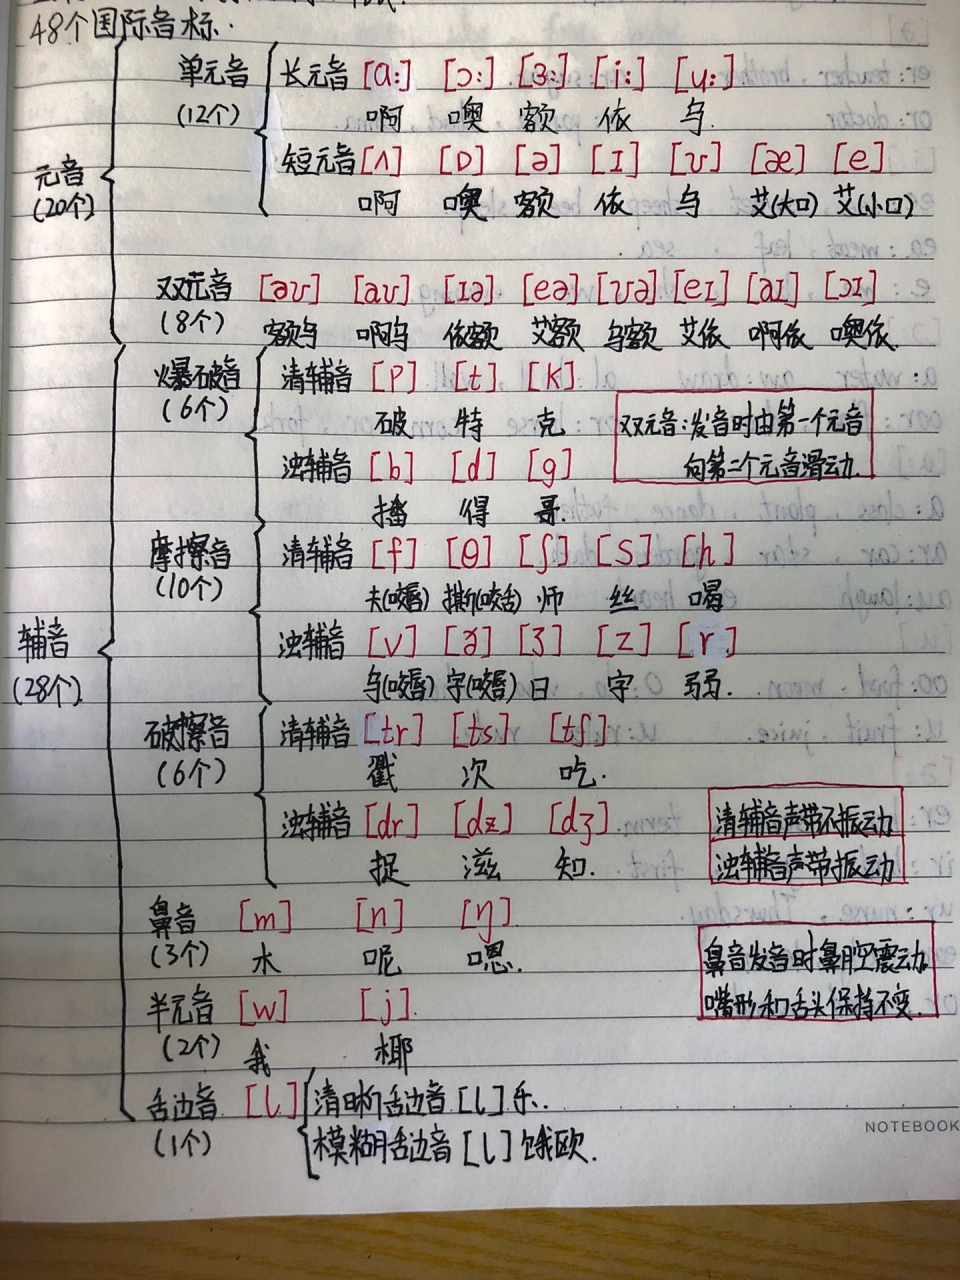 48个国际音标.
元音
(20个)
单元音
(12个)
长元音 [ɑ:] [ɔ:] [ɜ:] [i:] [u:]
啊 噢 额 依 乌.
短元音 [ʌ] [ɒ] [ə] [ɪ] [ʊ] [æ] [e]
啊 噢 额 依 乌 艾(大口) 艾(小口)
双元音 [əʊ] [aʊ] [ɪə] [eə] [ʊə] [eɪ] [aɪ] [ɔɪ]
(8个) 额乌 啊乌 依额 艾额 乌额 艾依 啊依 噢依.
辅音
(28个)
爆破音
(6个)
清辅音 [p] [t] [k]
破 特 克
浊辅音 [b] [d] [g]
播 得 哥.
双元音:发音时由第一个元音
向第二个元音滑动.
摩擦音
(10个)
清辅音 [f] [θ] [ʃ] [s] [h]
夫(咬唇) 撕(咬舌) 师 丝 喝
浊辅音 [v] [ð] [ʒ] [z] [r]
乌(咬唇) 字(咬唇) 日 字 弱.
破擦音
(6个)
清辅音 [tr] [ts] [tʃ]
戳 次 吃.
浊辅音 [dr] [dz] [dʒ]
捉 滋 知.
清辅音声带不振动
浊辅音声带振动
鼻音 [m] [n] [ŋ].
(3个) 木 呢 嗯.
鼻音发音时鼻腔震动
嘴形和舌头保持不变.
半元音 [w] [j].
(2个) 我 椰
舌边音 [l]
(1个)
清晰舌边音 [l] 乐.
模糊舌边音 [l] 饿欧.
NOTEBOOK